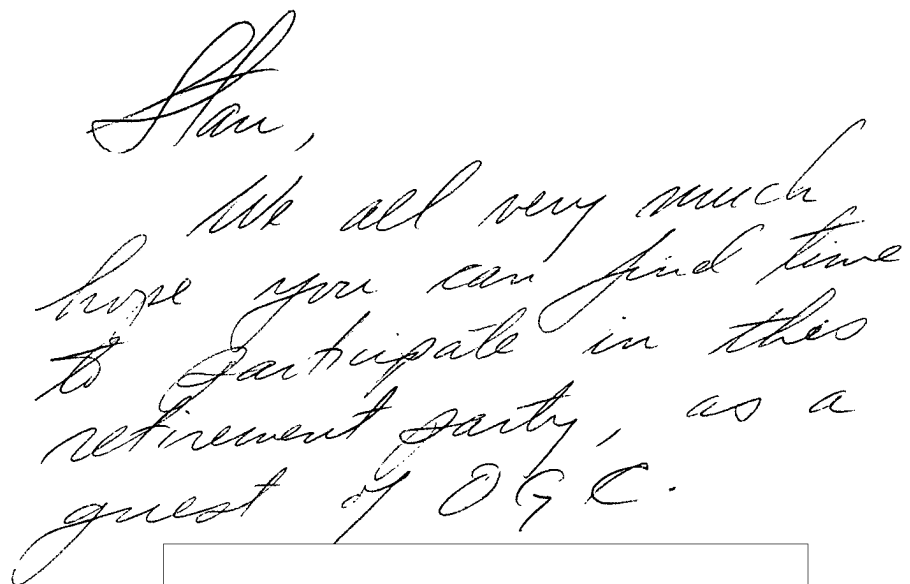 Stan,
We all very much
hope you can find time
to participate in this
retirement party, as a
guest of OGC.